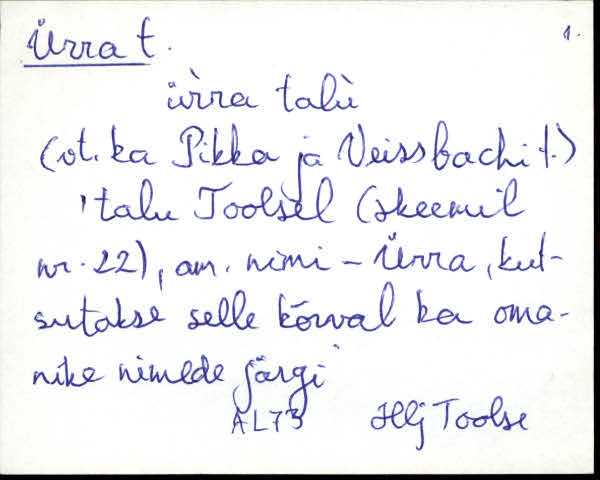 Ürra t.
1.
ürra talu
(vt. ka Pikka ja Veissbachi t.)
'talu Toolsel (skeemil
nr. 22), am. nimi – Ürra, kut-
sutakse selle kõrval ka oma-
nike nimede järgi'
AL73 Hlj Toolse